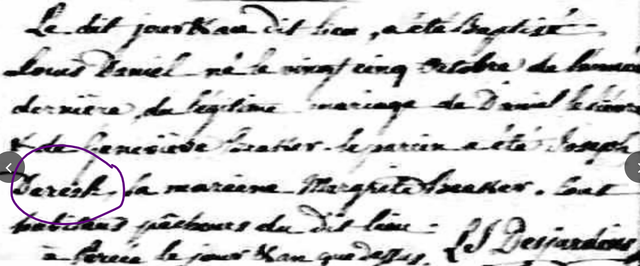 Le dit jour & an dit lieu, a été Baptisé
Louis Daniel né le vingt cinq octobre de l'année
dernière, du légitime mariage de Daniel
& de Geneviève le parein a été Joseph
la mareine Margrite tout
habitans pêcheurs du dit lieu.
à Percée le jour & an que dessus. Desjardins